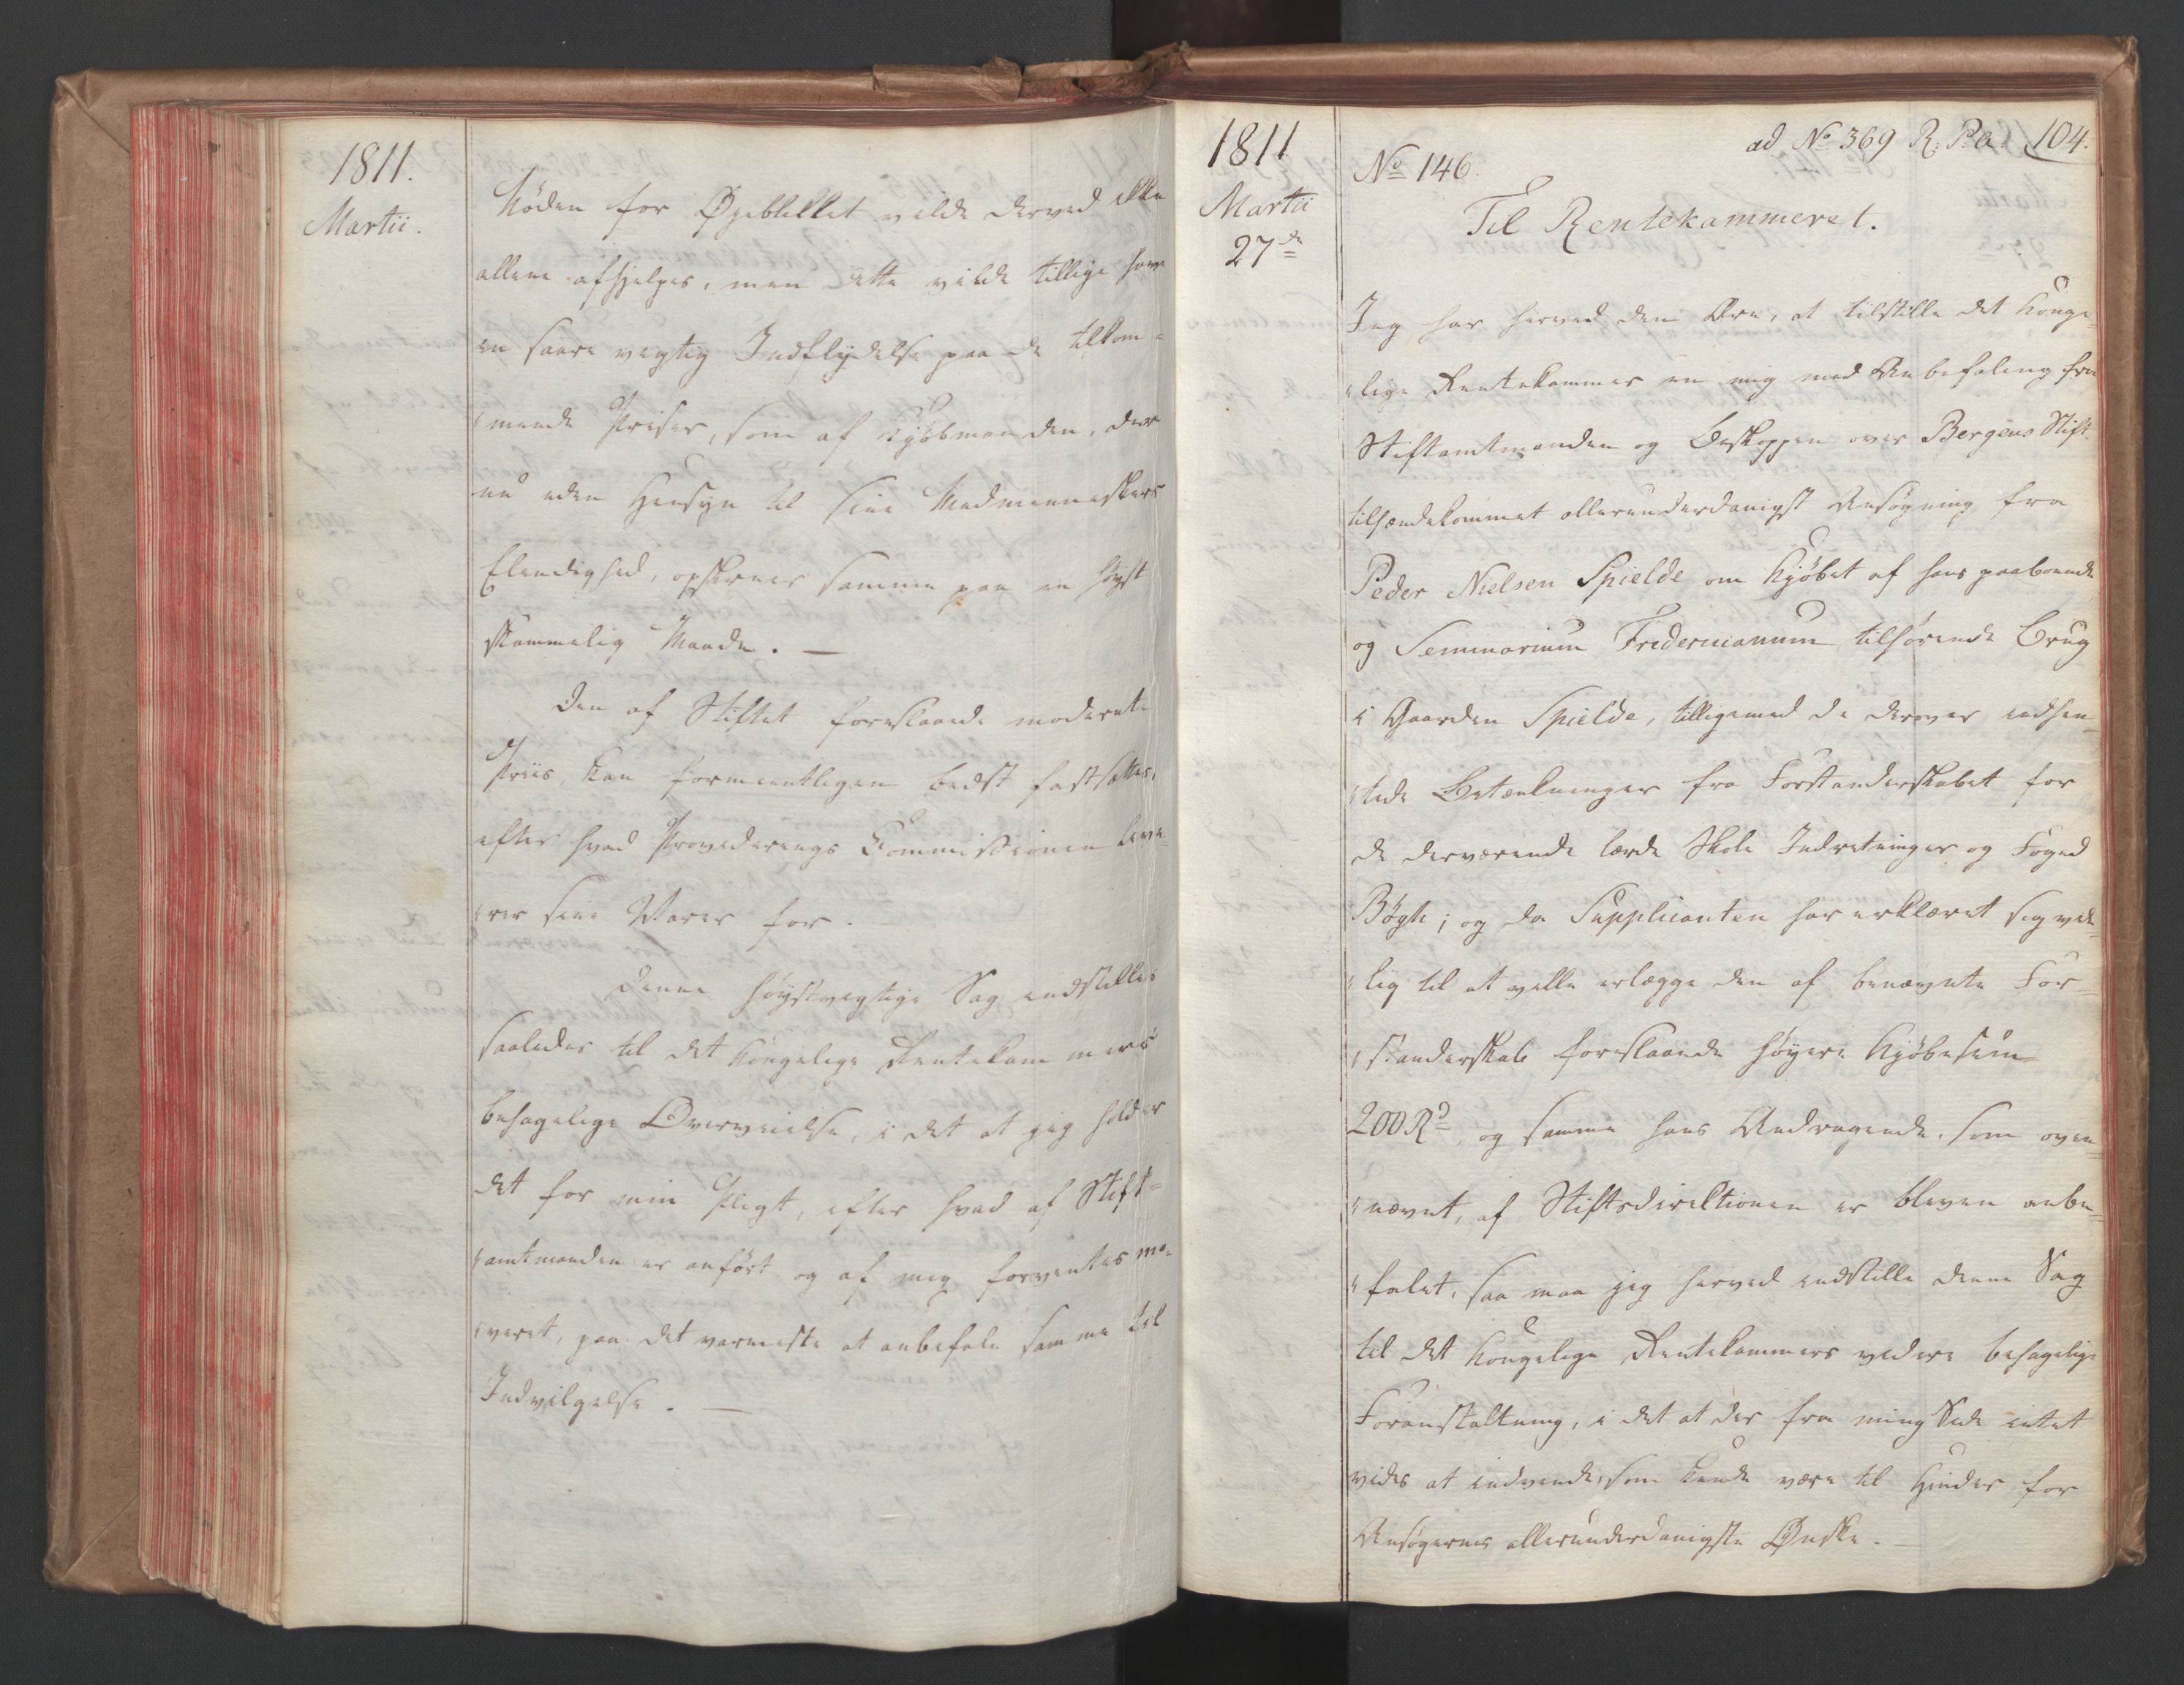 1811.
Martii.
Nøden for Øyeblikket vilde derved ikke
allene afhjelpes, men dette vilde tillige have
en saare vigtig Indflydelse paa de tilkom-
mende Priser, som af Kjøbmanden, der
nu uden Hensyn til sine Medmenneskers
Elendighed, opskrues samme paa en høyst
skammelig Maade. —
Den af Stiftet foreslaaede moderate
Priis, kan formeentligen bedst fastsættes,
efter hvad Provederings Commissionen leve-
rer sine Varer for.
Denne høystvigtige Sag indstilles
saaledes til det Kongelige Rentekammers
behagelige Overveielse, i det at jeg holder
det for min Pligt, efter hvad af Stift-
amtmanden er anført og af mig forventes mo-
veret, paa det varmeste at anbefale samme til
Indvilgelse. —
1811
Martii
27de
ad No 369 R: P: a: 104.
No 146.
Til Rentekammeret.
Jeg har herved den Ære, at tilstille det Konge-
lige Rentekammer en mig med Anbefaling fra
Stiftamtmanden og Biskoppen over Bergens Stift
tilhændekommet allerunderdanigst Ansøgning fra
Peder Nielsen Spielde om Kjøbet af hans paaboende
og Seminarium Fridericianum tilhørende Brug
i Gaarden Spielde, tilligemed de derover indhen-
tede Betænkninger fra Forstanderskabet for
de derværende lærde Skole Indretninger og Foged
Bøgh; og da Supplicanten har erklæret sig vil-
lig til at ville erlægge den af benævnte For-
standerskab foreslaaede høyere Kjøbesum
200 Rd, og samme hans Andragende, som oven-
nævnt, af Stiftsdirektionen er bleven anbe-
falet, saa maa jeg herved indstille denne Sag
til det Kongelige Rentekammers videre behagelige
Foranstaltning, i det at der fra min Side intet
vides at indvende, som kunde være til Hinder for
Ansøgerens allerunderdanigste Ønske. —